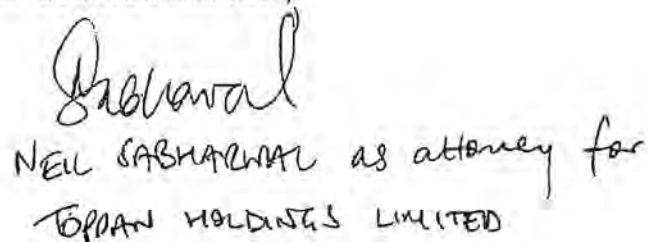 Sabharwal
NEIL SABHARWAL as attorney for
TOPPAN HOLDINGS LIMITED